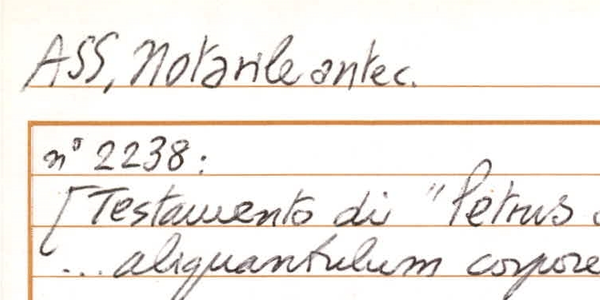 ASS, Notarile antec.
n° 2238:
[Testamento di "Petrus
... aliquantulum corpore